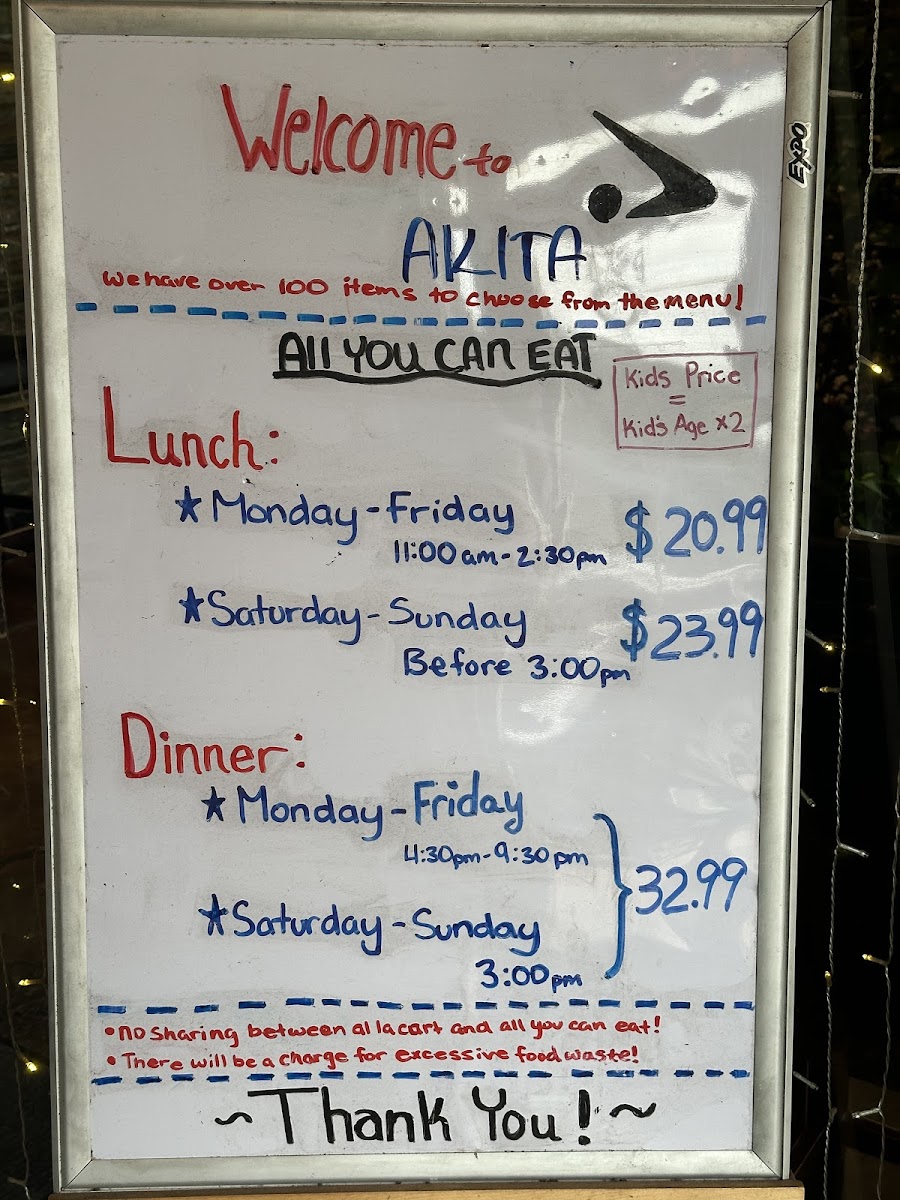 Welcome to
AKITA
We have over 100 items to choose from the menu!
All YOU CAN EAT
Kids Price
=
Kid's Age x2
Lunch:
★ Monday - Friday $20.99
11:00 am - 2:30pm
★ Saturday - Sunday $23.99
Before 3:00pm
Dinner:
★ Monday - Friday
4:30pm - 9:30pm
32.99
★ Saturday - Sunday
3:00pm
• No Sharing between al la cart and all you can eat!
• There will be a charge for excessive food waste!
~ Thank You! ~
EXPO